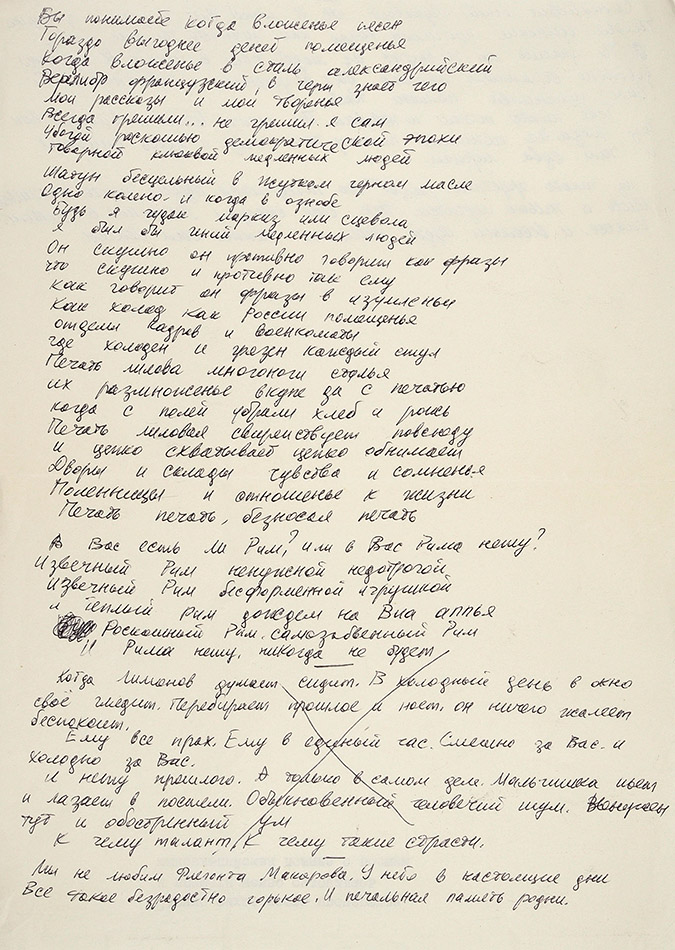 Вы понимаете когда вложенье песен
Гораздо выгоднее денег помещенья
Когда вложенье в стиль александрийский
Верлибр французский, в черти знает чего
Мои рассказы и мои творенья
Всегда грешили... не грешил я сам
Убогой роскошью демократической эпохи
товарной клюквой медленных людей
Шатун бесцельный в жутком черном масле
Одно колено. и когда в ознобе
Будь я чудак маркиз или сцевола
Я был бы гений медленных людей
Он скушно он противно говорит как фразы
что скушно и противно так ему
как говорит он фразы в изумленьи
Как холод как России помещенья
отделы кадров и военкоматы
где холоден и грезен каждый стул
Печать лилова многоноги стулья
их размноженье вкупе да с печатью
когда с полей убрали хлеб и рожь
Печать лиловая свирепствует повсюду
и цепко схватывает цепко обнимает
Дворы и склады чувства и сомненья
Поленницы и отношенье к жизни
Печать печать, безносая печать
В Вас есть ли Рим? или в Вас Рима нету?
Извечный Рим ненужной недотрогой
Извечный Рим бесформенной игрушкой
и теплый Рим дождем на Виа аппья
Роскошный Рим. самозабвенный Рим
И Рима нету, никогда не будет
Когда Лимонов думает сидит. В холодный день в окно
своё глядит. Перебирает прошлое и ноет. он ничего жалеет
беспокоит.
Ему все прах. Ему в единый час. Смешно за Вас. и
холодно за Вас.
И нету прошлого. А только в самом деле. Мальчишка пьет
и лазает в постели. Обыкновенный человечий шум.
тут и обостренный ум
К чему талант, К чему такие страсти.
Мы не любим Флегонта Макарова. У него в настоящие дни
Все такое безрадостно горькое. И печальная память родни.